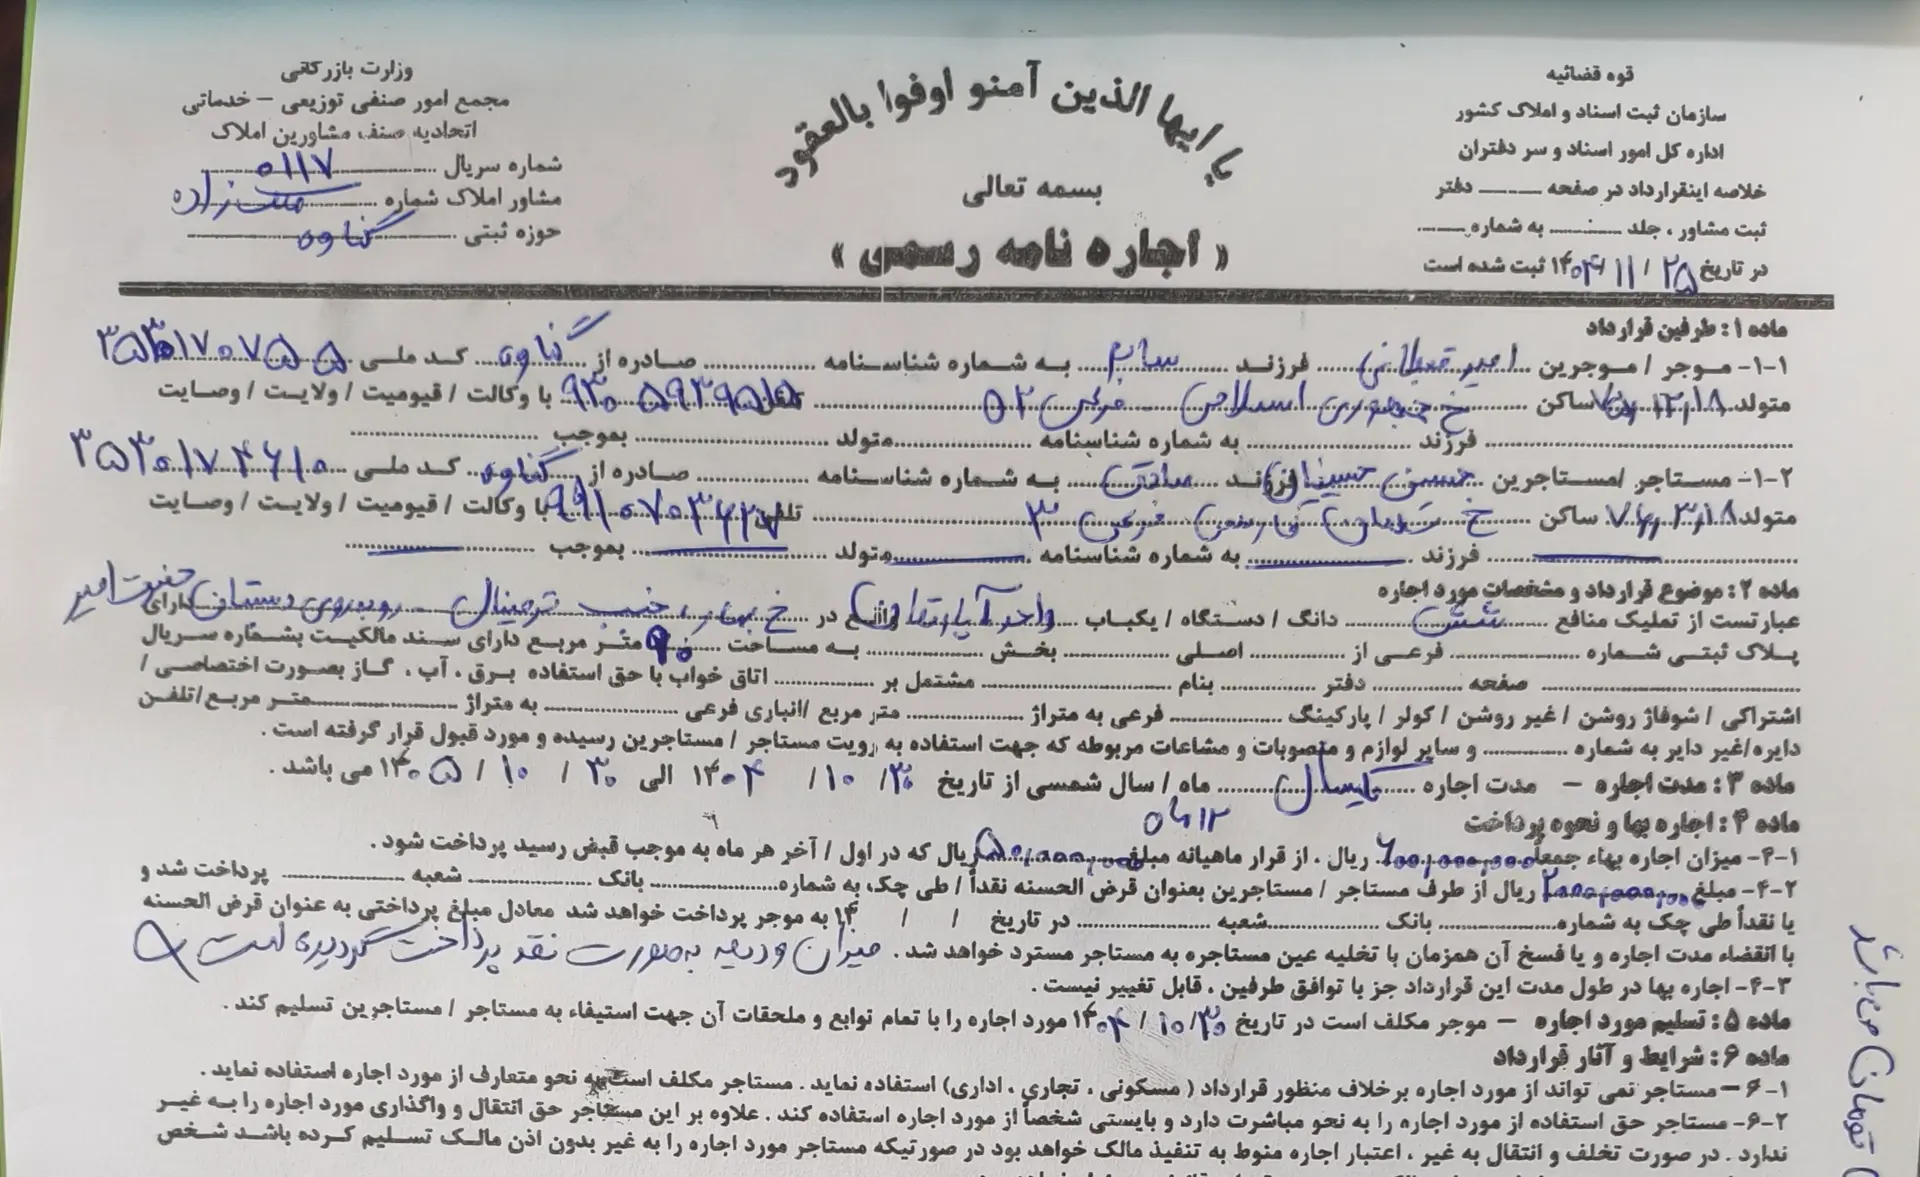 قوه قضائیه
سازمان ثبت اسناد و املاک کشور
اداره کل امور اسناد و سر دفتران
خلاصه اینقرارداد در صفحه ........ دفتر
ثبت مشاور ، جلد ........ به شماره ........
در تاریخ ۲۵ / ۱۱ / ۱۴۰۴ ثبت شده است
یا ایها الذین آمنو اوفوا بالعقود
بسمه تعالی
« اجاره نامه رسمی »
وزارت بازرگانی
مجمع امور صنفی توزیعی – خدماتی
اتحادیه صنف مشاورین املاک
شماره سریال ۰۱۱۷
مشاور املاک شماره ........
حوزه ثبتی گناوه
ماده ۱ : طرفین قرارداد
۱-۱- موجر / موجرین امیر ........ فرزند ........ به شماره شناسنامه ........ صادره از گناوه کد ملی
متولد ........ ساکن خ جمهوری اسلامی فرعی ۵۲ تلفن ........ با وکالت / قیومیت / ولایت / وصایت
........ فرزند ........ به شماره شناسنامه ........ متولد ........ بموجب ........
۱-۲- مستاجر /مستاجرین حسین ........ فرزند صادق به شماره شناسنامه ........ صادره از گناوه کد ملی ۳۵۳۰۱۷۴۶۱۰
متولد ۷۶/۰۳/۱۸ ساکن خ ........ فرعی ۳ تلفن ........ با وکالت / قیومیت / ولایت / وصایت
........ فرزند ........ به شماره شناسنامه ........ متولد ........ بموجب ........
ماده ۲ : موضوع قرارداد و مشخصات مورد اجاره
عبارتست از تملیک منافع شش دانگ / دستگاه / یکباب واحد آپارتمان واقع در خ بهار ، جنب ترمینال روبروی دبستان حضرت امیر دارای
پلاک ثبتی شماره ........ فرعی از ........ اصلی ........ بخش ........ به مساحت ۹۰ متر مربع دارای سند مالکیت بشماره سریال
........ صفحه ........ دفتر ........ بنام ........ مشتمل بر ........ اتاق خواب با حق استفاده برق ، آب ، گاز بصورت اختصاصی /
اشتراکی / شوفاژ روشن / غیر روشن / کولر / پارکینگ ........ فرعی به متراژ ........ متر مربع /انباری فرعی ........ به متراژ ........ متر مربع/تلفن
دایره/غیر دایر به شماره ........ و سایر لوازم و منصوبات و مشاعات مربوطه که جهت استفاده به رویت مستاجر / مستاجرین رسیده و مورد قبول قرار گرفته است .
ماده ۳ : مدت اجاره – مدت اجاره یکسال ماه / سال شمسی از تاریخ ۳۰/ ۱۰ / ۱۴۰۴ الی ۳۰ / ۱۰ / ۱۴۰۵ می باشد .
۱۲ ماه
ماده ۴ : اجاره بها و نحوه پرداخت
۴-۱- میزان اجاره بهاء جمعاً ۶۰۰,۰۰۰,۰۰۰ ریال ، از قرار ماهیانه مبلغ ۵۰,۰۰۰,۰۰۰ ریال که در اول / آخر هر ماه به موجب قبض رسید پرداخت شود .
۴-۲- مبلغ ........ ریال از طرف مستاجر / مستاجرین بعنوان قرض الحسنه نقداً / طی چک به شماره ........ بانک ........ شعبه ........ پرداخت شد و
یا نقداً طی چک به شماره ........ بانک ........ شعبه ........ در تاریخ / / ۱۴ به موجر پرداخت خواهد شد معادل مبلغ پرداختی به عنوان قرض الحسنه
با انقضاء مدت اجاره و یا فسخ آن همزمان با تخلیه عین مستاجره به مستاجر مسترد خواهد شد . میزان ودیعه به صورت نقد پرداخت گردیده است
۴-۳- اجاره بها در طول مدت این قرارداد جز با توافق طرفین ، قابل تغییر نیست .
ماده ۵ : تسلیم مورد اجاره – موجر مکلف است در تاریخ ۳۰/ ۱۰ / ۱۴۰۴ مورد اجاره را با تمام توابع و ملحقات آن جهت استیفاء به مستاجر / مستاجرین تسلیم کند .
ماده ۶ : شرایط و آثار قرارداد
۶-۱- مستاجر نمی تواند از مورد اجاره برخلاف منظور قرارداد ( مسکونی ، تجاری ، اداری) استفاده نماید . مستاجر مکلف است به نحو متعارف از مورد اجاره استفاده نماید .
۶-۲- مستاجر حق استفاده از مورد اجاره را به نحو مباشرت دارد و بایستی شخصاً از مورد اجاره استفاده کند . علاوه بر این مستاجر حق انتقال و واگذاری مورد اجاره را به غیر
ندارد . در صورت تخلف و انتقال به غیر ، اعتبار اجاره منوط به تنفیذ مالک خواهد بود در صورتیکه مستاجر مورد اجاره را به غیر بدون اذن مالک تسلیم کرده باشد شخص
تومان می باشد